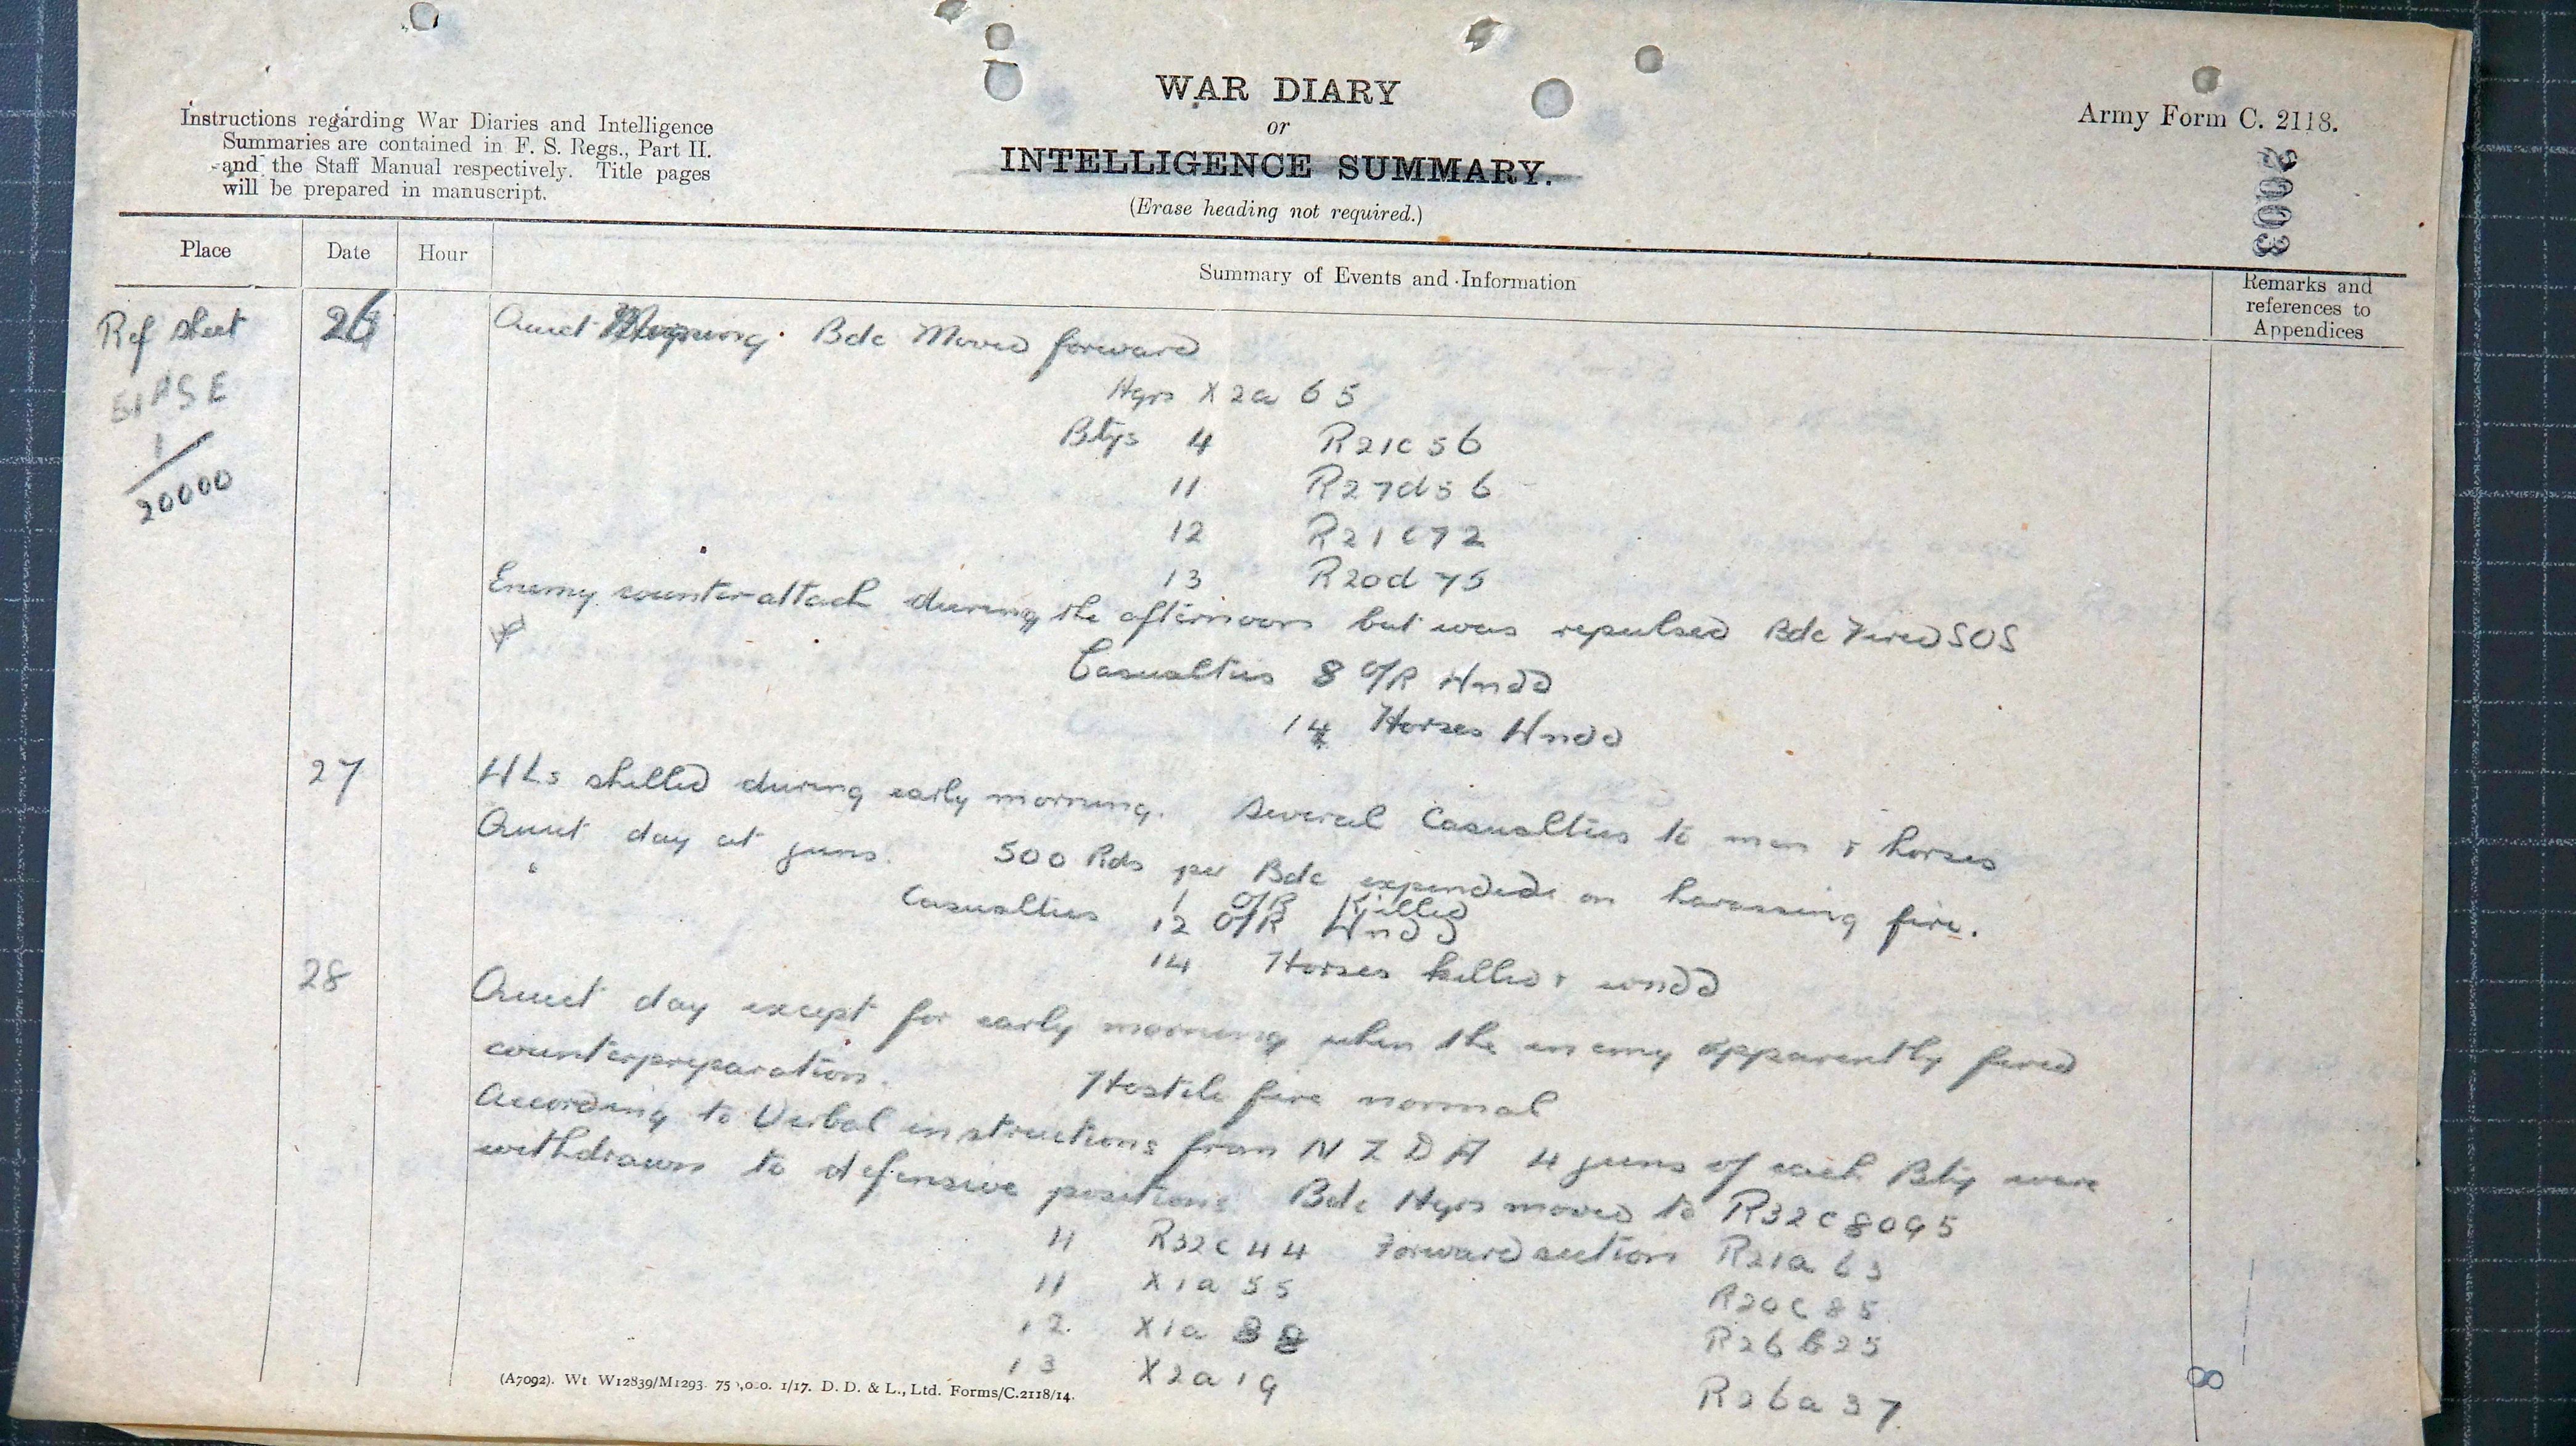 WAR DIARY
or
INTELLIGENCE SUMMARY.
(Erase heading not required.)
Instructions regarding War Diaries and Intelligence
Summaries are contained in F. S. Regs., Part II.
and the Staff Manual respectively. Title pages
will be prepared in manuscript.
Army Form C. 2118.
2003
Place Date Hour Summary of Events and Information Remarks and
references to
Appendices
Ref sheet 26 Quiet Morning. Bde Moved forward
51ASE
1/20000
Hqrs X2a 65
Btys 4 R21c56
11 R27d56
12 R21c72
13 R20d 75
Enemy counter-attack during the afternoon but was repulsed Bde Fired SOS
Casualties 8 O/R Wndd
14 Horses Wndd
27 WLs shelled during early morning. Several Casualties to men & horses
Quiet day at guns. 500 Rds per Bde expended on harassing fire.
Casualties 1 O/R Killed
12 O/R Wndd
14 Horses killed & wndd
28 Quiet day except for early morning when the enemy apparently fired
counterpreparation. Hostile fire normal
According to Verbal instructions from N Z D A 4 guns of each Bty were
withdrawn to defensive positions Bde Hqrs moved to R32c8095
R32c44 Forward section R21a 63
11 X1a 55 R20c 85
12 X1a 88 R26b25
13 X2a 19 R26a 37
(A7092). Wt. W12839/M1293. 750,000. 1/17. D. D. & L., Ltd. Forms/C.2118/14.
8